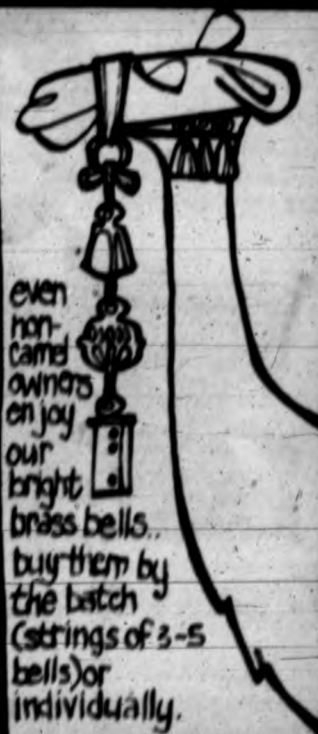 even
non-
camel
owners
enjoy
our
bright
brass bells..
buy them by
the batch
(strings of 3-5
bells) or
individually.